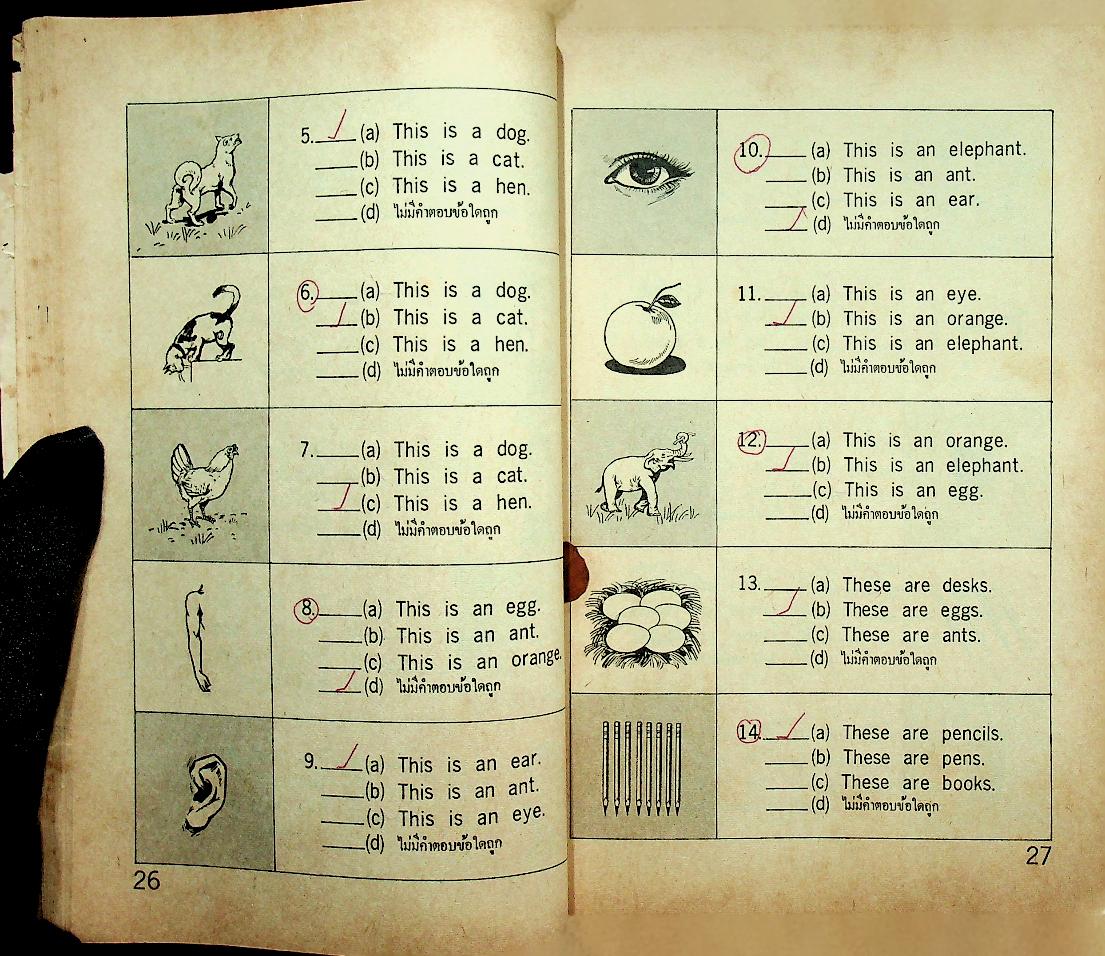 5. (a) This is a dog.
(b) This is a cat.
(c) This is a hen.
(d) ไม่มีคำตอบข้อใดถูก
6. (a) This is a dog.
(b) This is a cat.
(c) This is a hen.
(d) ไม่มีคำตอบข้อใดถูก
7. (a) This is a dog.
(b) This is a cat.
(c) This is a hen.
(d) ไม่มีคำตอบข้อใดถูก
8. (a) This is an egg.
(b) This is an ant.
(c) This is an orange.
(d) ไม่มีคำตอบข้อใดถูก
9. (a) This is an ear.
(b) This is an ant.
(c) This is an eye.
(d) ไม่มีคำตอบข้อใดถูก
26
10. (a) This is an elephant.
(b) This is an ant.
(c) This is an ear.
(d) ไม่มีคำตอบข้อใดถูก
11. (a) This is an eye.
(b) This is an orange.
(c) This is an elephant.
(d) ไม่มีคำตอบข้อใดถูก
12. (a) This is an orange.
(b) This is an elephant.
(c) This is an egg.
(d) ไม่มีคำตอบข้อใดถูก
13. (a) These are desks.
(b) These are eggs.
(c) These are ants.
(d) ไม่มีคำตอบข้อใดถูก
14. (a) These are pencils.
(b) These are pens.
(c) These are books.
(d) ไม่มีคำตอบข้อใดถูก
27